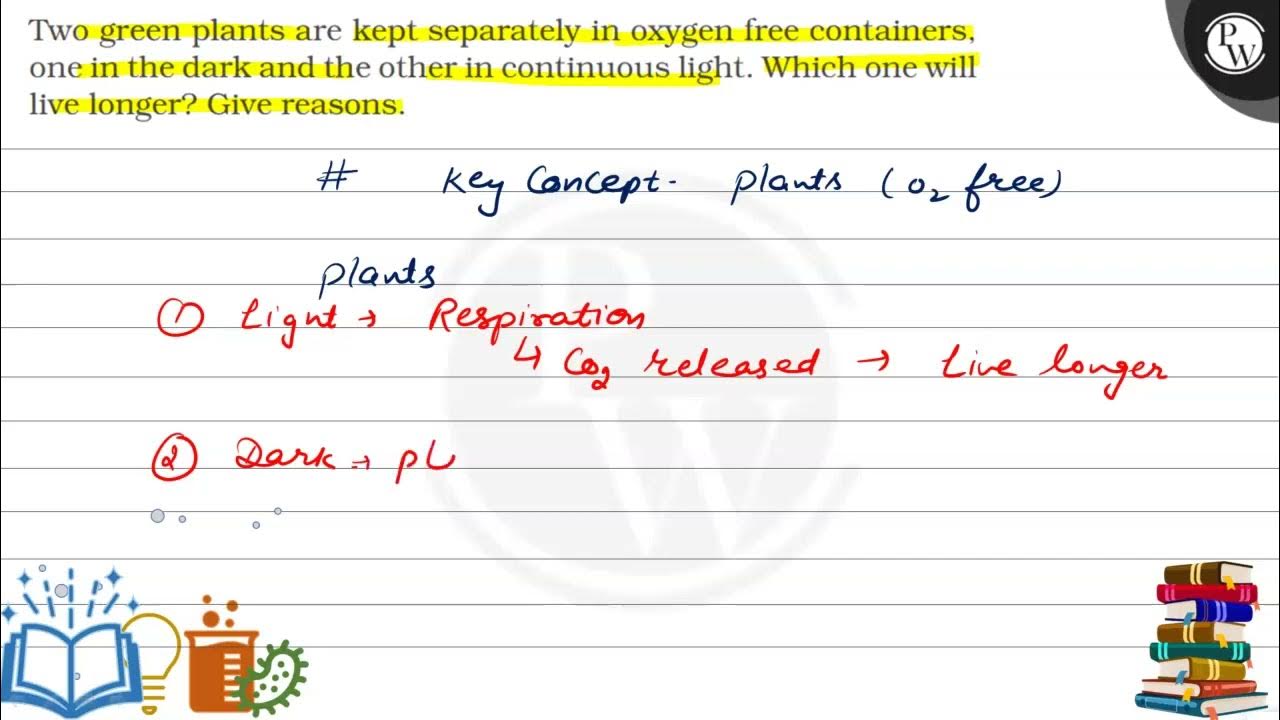 Two green plants are kept separately in oxygen free containers,
one in the dark and the other in continuous light. Which one will
live longer? Give reasons.
PW
# Key Concept- plants (O₂ free)
plants
① Light → Respiration
↳ CO₂ released → Live longer
② Dark → pL
PW